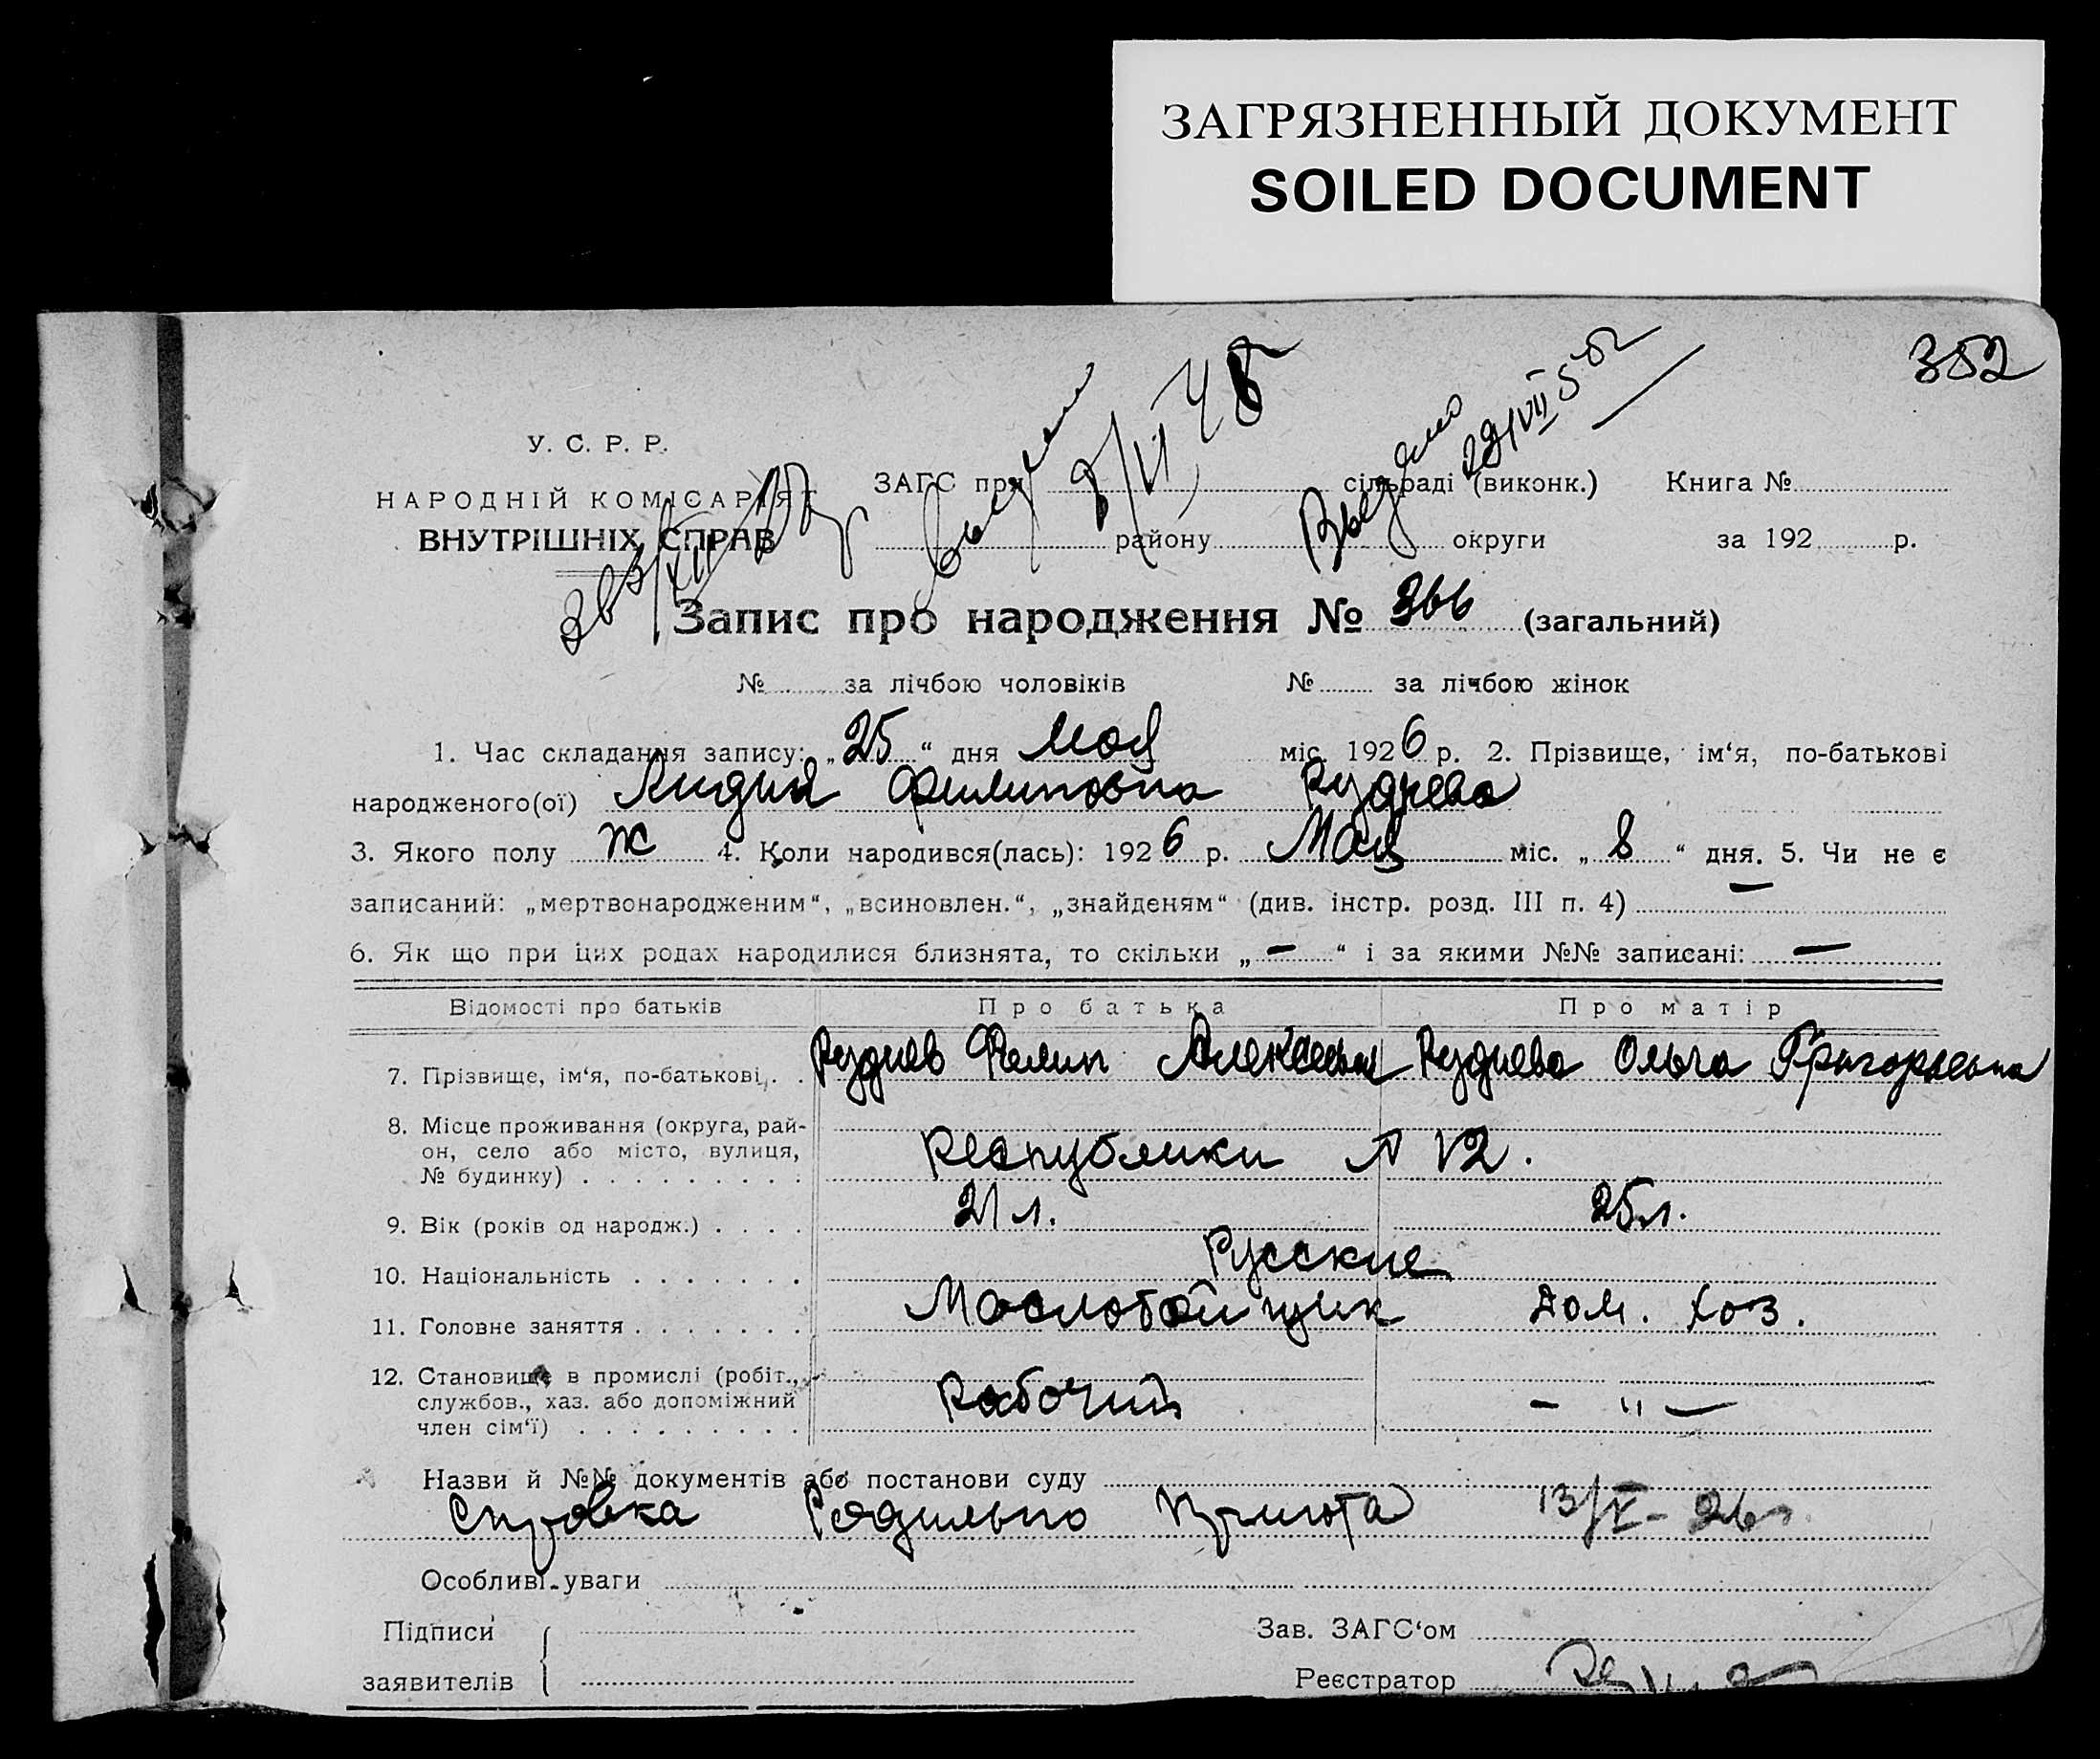 ЗАГРЯЗНЕННЫЙ ДОКУМЕНТ
SOILED DOCUMENT
352
У. С. Р. Р.
НАРОДНІЙ КОМІСАРІЯТ
ВНУТРІШНІХ СПРАВ
ЗАГС при сільраді (виконк.) Книга №
району округи за 192 р.
Выдано 29/VII 52
Запис про народження № 366 (загальний)
№ за лічбою чоловіків № за лічбою жінок
1. Час складання запису: „25“ дня Мая міс. 1926 р. 2. Прізвище, ім‘я, по-батькові
народженого(ої) Лидия Филиповна Руднева
3. Якого полу Ж 4. Коли народився(лась): 1926 р. Мая міс. „8“ дня. 5. Чи не є
записаний: „мертвонародженим“, „всиновлен.“, „знайденям“ (див. інстр. розд. III п. 4) —
6. Як що при цих родах народилися близнята, то скільки „—“ і за якими №№ записані: —
Відомості про батьків Про батька Про матір
7. Прізвище, ім‘я, по-батькові . . Руднев Филип Алексеевич Руднева Ольга Григорьевна
8. Місце проживання (округа, рай-
он, село або місто, вулиця,
№ будинку) . . . . . . . . . Республики 12.
9. Вік (років од народж.) . . . . 21 л. 25 л.
10. Національність . . . . . . . Русские
11. Головне заняття . . . . . . . Маслобойщик Дом. хоз.
12. Становище в промислі (робіт.,
службов., хаз. або допоміжний
член сім‘ї) . . . . . . . . . Рабочий — " —
Назви й №№ документів або постанови суду
Справка Родильно Приюта 13/V-26 г.
Особливі уваги
Підписи Зав. ЗАГС‘ом
заявителів Реєстратор